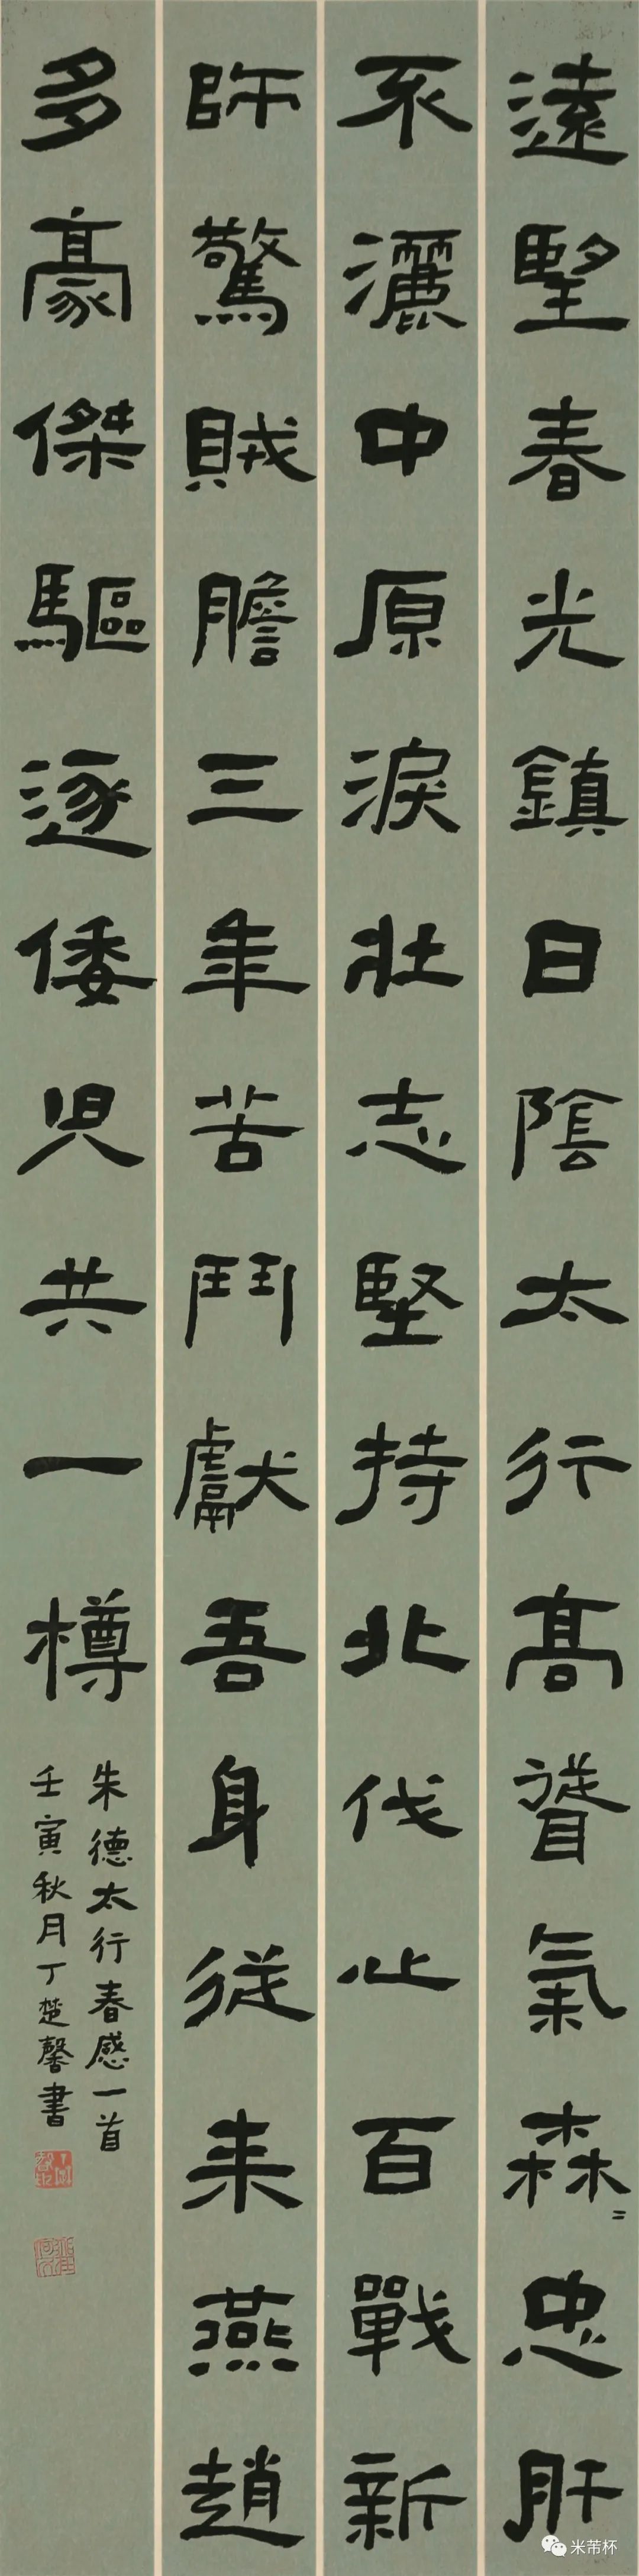 遠朢春光鎮日陰太行高聳氣森〻忠肝
不灑中原淚壯志堅持北伐心百戰新
師驚賊膽三年苦鬥獻吾身従来燕趙
多豪傑驅逐倭児共一樽
朱德太行春感一首
壬寅秋月丁楚馨書
米芾杯